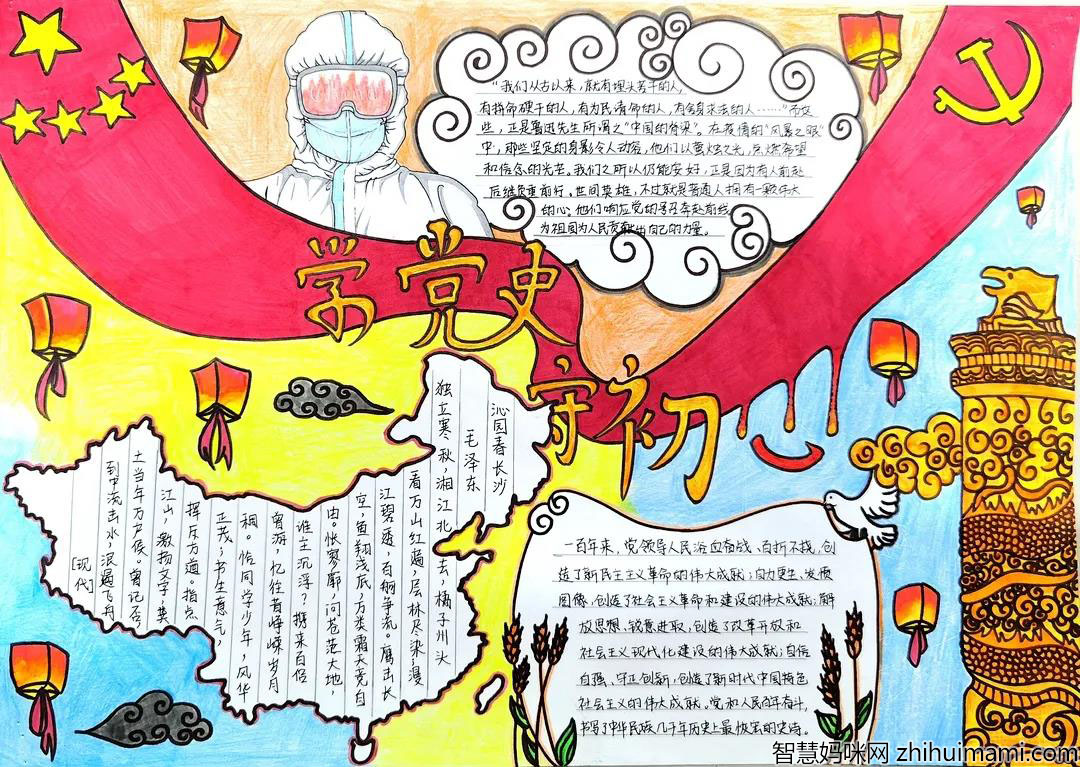 "我们从古以来,就有埋头苦干的人,
有拼命硬干的人,有为民请命的人,有舍身求法的人……"而这
些,正是鲁迅先生所谓之"中国的脊梁"。在疫情的"风暴之眼"
中,那些坚定的身影令人动容,他们以萤烛之光,点燃希望
和信念的光芒。我们之所以仍能安好,正是因为有人前赴
后继负重前行。世间英雄,不过就是普通人拥有一颗伟大
的心;他们响应党的号召奔赴前线
为祖国为人民贡献出自己的力量。
学党史
守初心
沁园春 长沙
毛泽东
独立寒秋,湘江北去,橘子州头
看万山红遍,层林尽染;漫
江碧透,百舸争流。鹰击长
空,鱼翔浅底,万类霜天竞自
由。怅寥廓,问苍茫大地,
谁主沉浮?携来百侣
曾游,忆往昔峥嵘岁月
稠。恰同学少年,风华
正茂;书生意气,
挥斥方遒。指点
江山,激扬文字,粪
土当年万户侯。曾记否
到中流击水,浪遏飞舟
[现代]
一百年来,党领导人民浴血奋战、百折不挠,创
造了新民主主义革命的伟大成就;自力更生、发愤
图强,创造了社会主义革命和建设的伟大成就;解
放思想、锐意进取,创造了改革开放和
社会主义现代化建设的伟大成就;自信
自强、守正创新,创造了新时代中国特色
社会主义的伟大成就。党和人民百年奋斗,
书写了中华民族几千年历史上最恢宏的史诗。
智慧妈咪网 zhihuimami.com